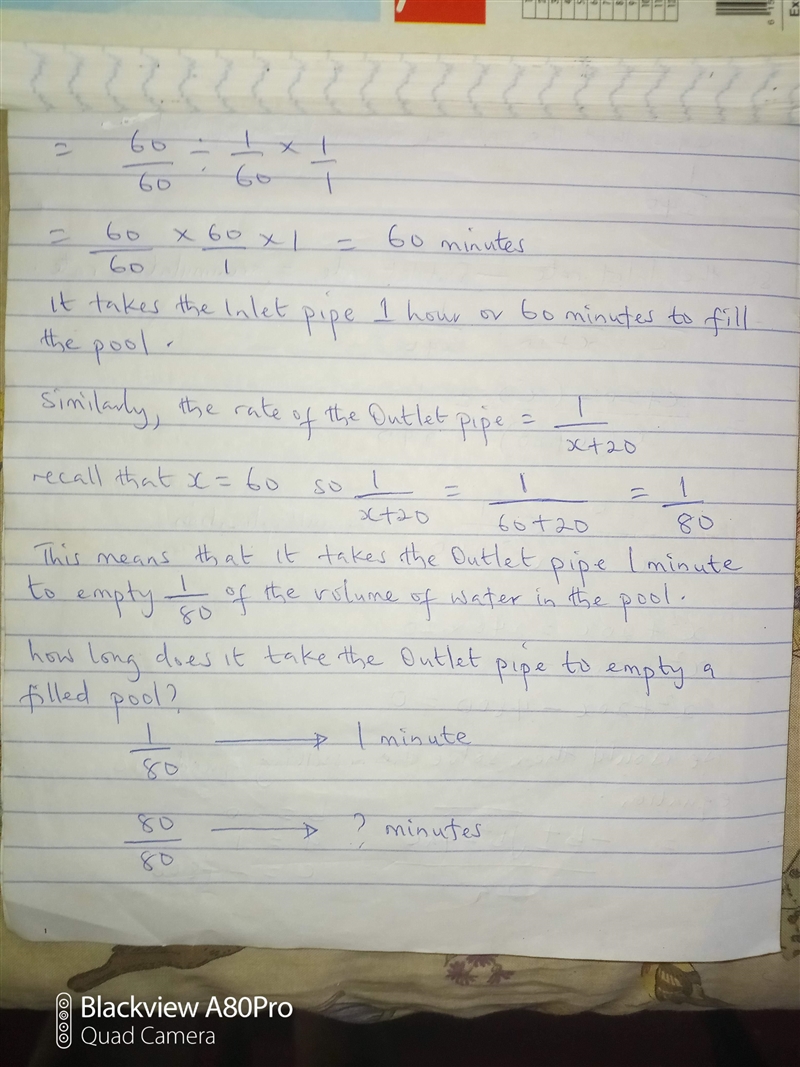 = 60/60 ÷ 1/60 × 1/1
= 60/60 × 60/1 × 1 = 60 minutes
it takes the Inlet pipe 1 hour or 60 minutes to fill
the pool.
Similarly, the rate of the Outlet pipe = 1/x+20
recall that x = 60 so 1/x+20 = 1/60+20 = 1/80
This means that it takes the Outlet pipe 1 minute
to empty 1/80 of the volume of water in the pool.
how long does it take the Outlet pipe to empty a
filled pool?
1/80 → 1 minute
80/80 → ? minutes
Blackview A80Pro
Quad Camera